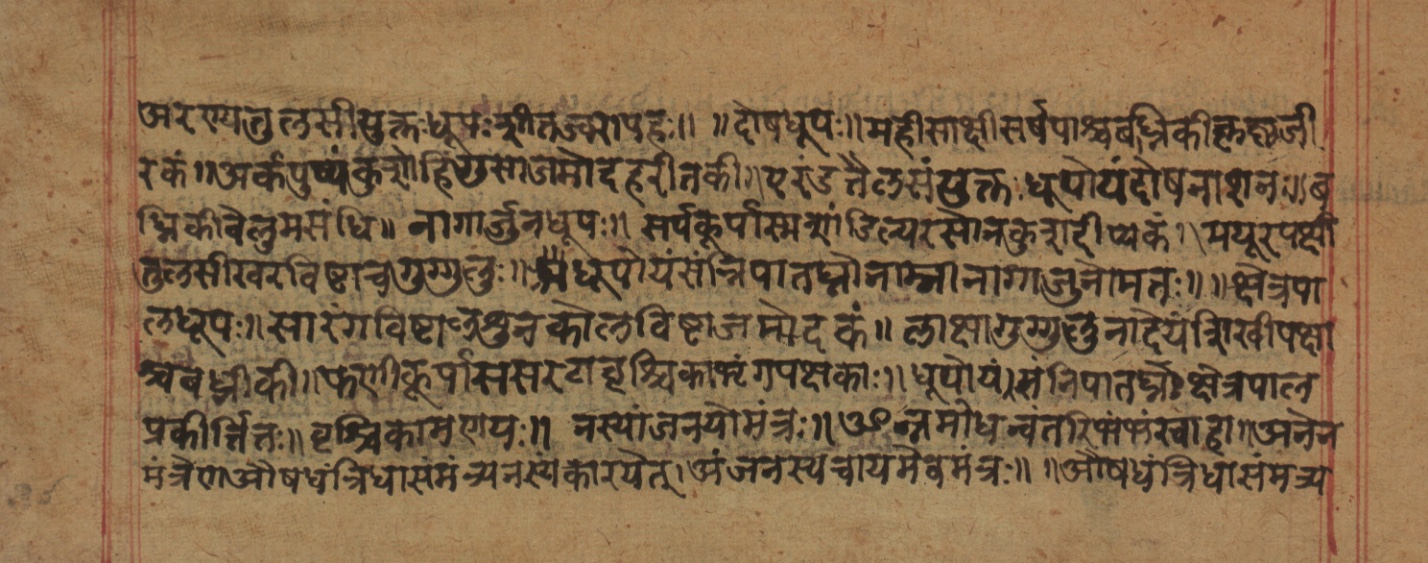 अरण्यतुलसीयुक्तधूपःशीतज्वरापहः॥ ॥दोषधूपः॥महीसाक्षीसर्षपाश्चबध्निकीकृष्णजी
रकं॥अर्कपुष्पं हरीतकी॥एरंडतैलसंयुक्तःधूपोयंदोषनाशनः॥ब
ध्निकीवेलुमसंधि॥ नागार्जुनधूपः॥ सर्पकूर्पास मयूरपक्षी
तुलसीखरविष्टाचगुग्गुलुः॥ धूपोयंसंन्निपातघ्नोनाम्नानागार्जुनोमतः॥ ॥क्षेत्रपा
लधूपः॥सारंगविष्टा कोलविष्टाजमोदकं॥ लाक्षागुग्गुलुनादेयंशिखीपक्षा
श्चबध्नीकी॥फणीकूर्पाससरटावृश्चिका पक्षकाः॥धूपोयंसंनिपातघ्नःक्षेत्रपाल
प्रकीर्त्तितः॥वृश्चिकाभ्रमणयः॥ नस्यांजनयोमंत्रः॥ॐनमोधन्वंतरि स्वाहा॥अनेन
मंत्रेणऔषधंत्रिधासंमंत्र्यनस्यंकारयेत्।अंजनस्यचायमेवमंत्रः॥ ॥औषधंत्रिधासंमंत्र्य